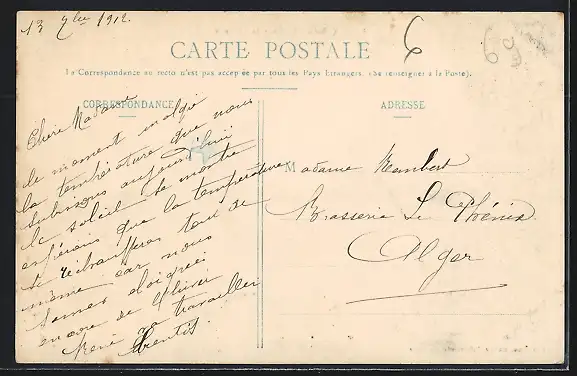 13 7bre 1912.
6
CARTE POSTALE
La Correspondance au recto n'est pas acceptée par tous les Pays Etrangers. (Se renseigner à la Poste).
CORRESPONDANCE
ADRESSE
Chère Madame
de moment malgré
la température que nous
subissons aujourd'hui
le soleil se montre
espérons que la température
se réchauffera tout de
même car nous
sommes éloignés
encore de l'hiver
René va travailler
bientôt.
Madame Rambert
Brasserie Le Phénix
Alger